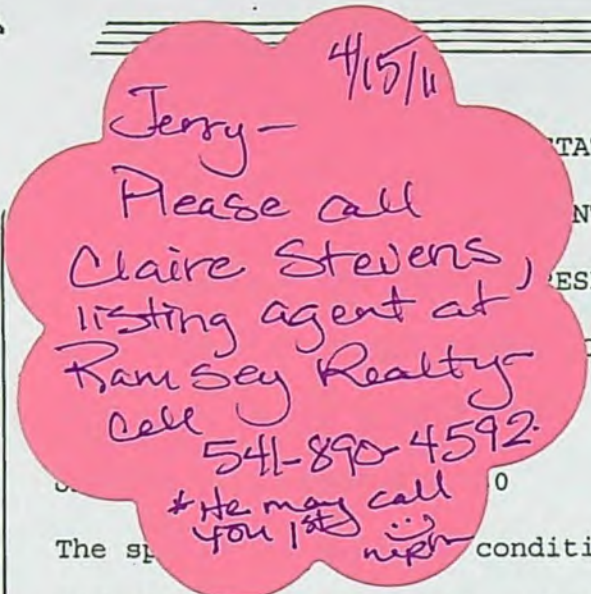 4/15/11
Jerry-
Please call
Claire Stevens,
listing agent at
Ramsey Realty-
cell
541-890-4592.
* He may call
you 1st
The sp conditi